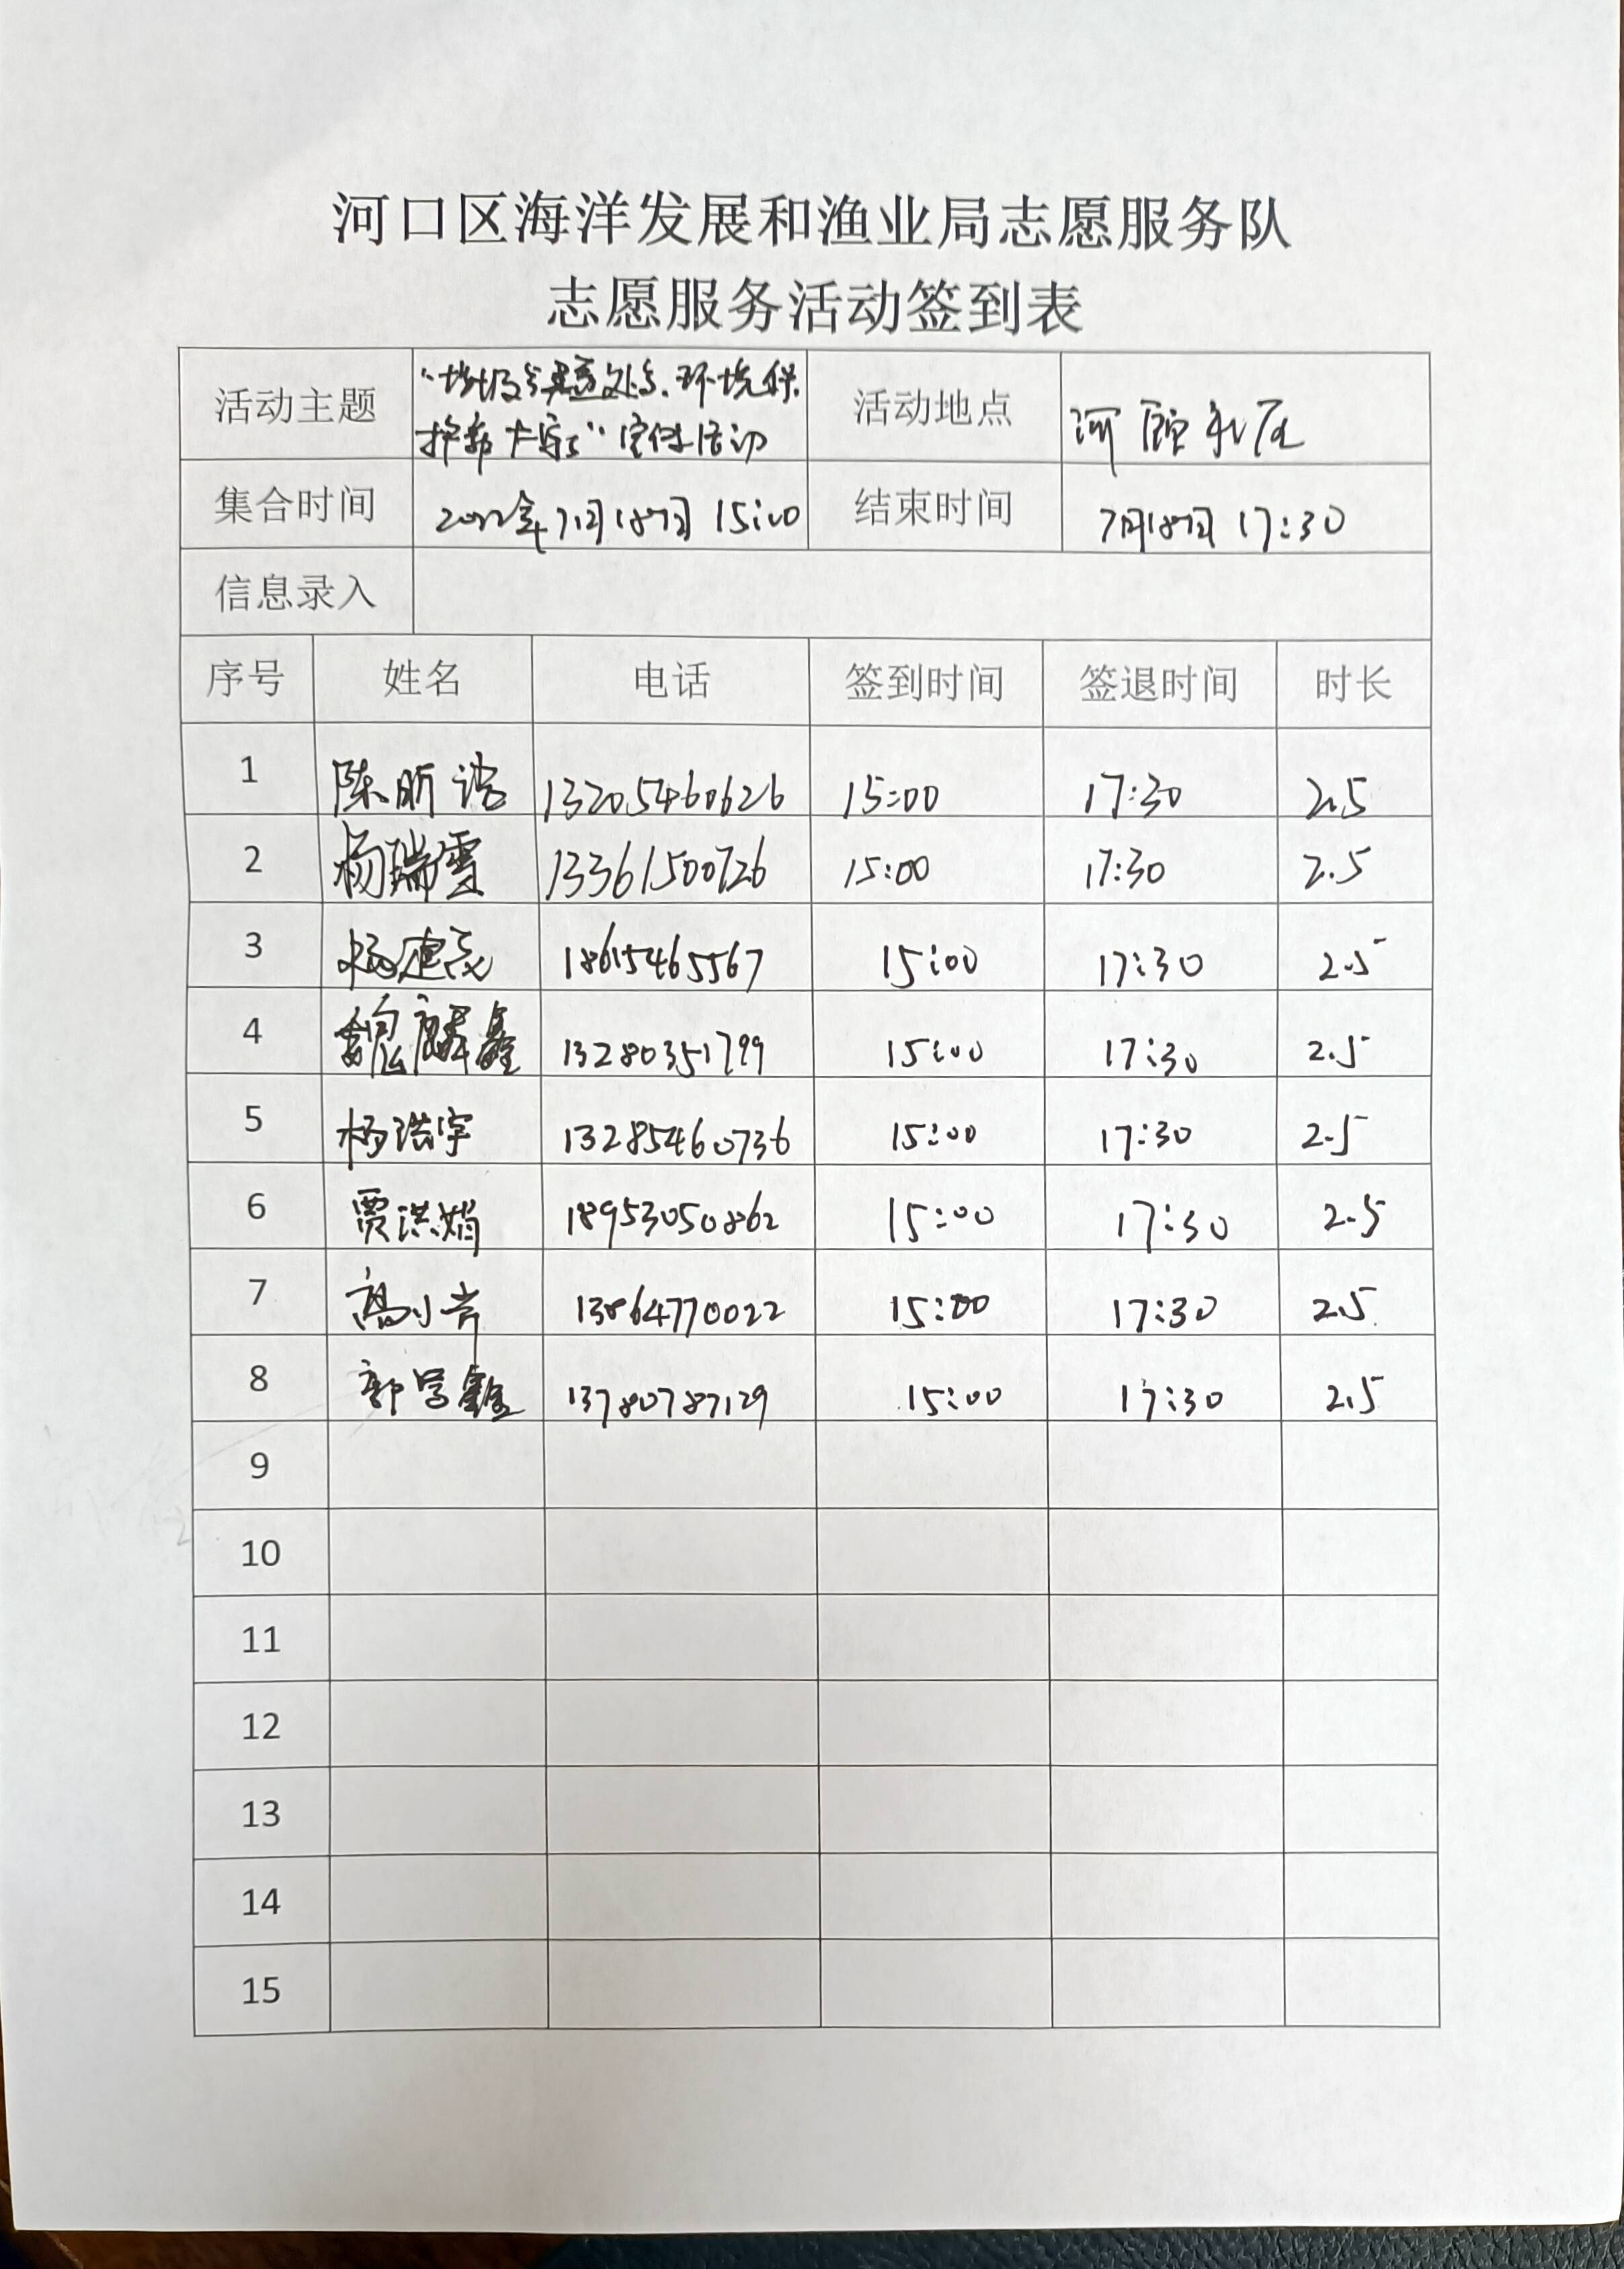 河口区海洋发展和渔业局志愿服务队
志愿服务活动签到表
活动主题 “垃圾 处 环境保
护靠大家”宣传活动 活动地点 河颐社区
集合时间 2022年7月18日 15:00 结束时间 7月18日 17:30
信息录入
序号 姓名 电话 签到时间 签退时间 时长
1 陈昕 13205460626 15:00 17:30 2.5
2 杨瑞雪 13361500726 15:00 17:30 2.5
3 杨建 18615465567 15:00 17:30 2.5
4 魏麟鑫 13280351799 15:00 17:30 2.5
5 杨洪宇 13285460736 15:00 17:30 2.5
6 贾洪娟 18953050862 15:00 17:30 2.5
7 高小岸 13864770022 15:00 17:30 2.5
8 郭学鑫 13780787129 15:00 17:30 2.5
9
10
11
12
13
14
15